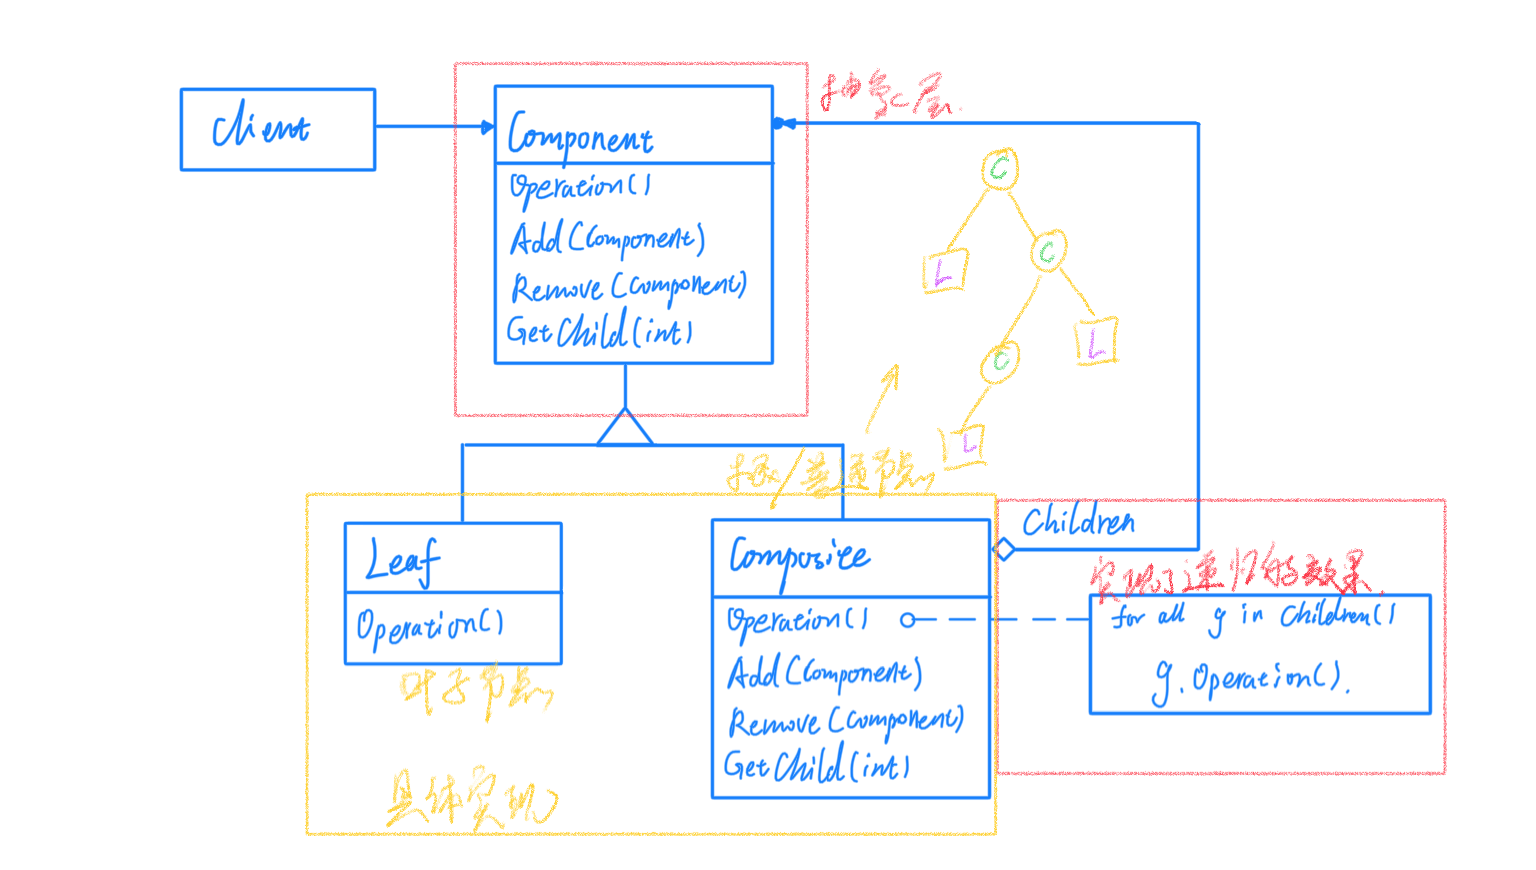 Client
Component
Operation()
Add(Component)
Remove(Component)
GetChild(int)
抽象层.
C
L
C
C
L
L
根/普通节点
Leaf
Operation()
叶子节点
具体实现
Composite
Operation()
Add(Component)
Remove(Component)
GetChild(int)
Children
实现了递归的效果.
for all g in Children()
g.Operation().